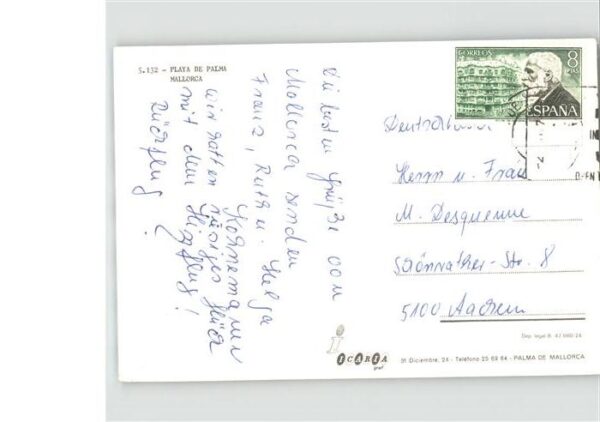 5.132 - PLAYA DE PALMA
MALLORCA
Die besten Grüße von
Mallorca senden
Franz, Ruth u. Helga
Kornemann
wir hatten
mit dem Hinflug!
Rückflug
CORREOS
8
PTAS
ESPAÑA
Deutschland
Herrn u. Frau
M. Desquenne
Schönrather-Str. 8
5100 Aachen
Dep. legal B. 42 060-24
ICARIA
graf
31 Diciembre, 24 - Teléfono 25 69 64 - PALMA DE MALLORCA